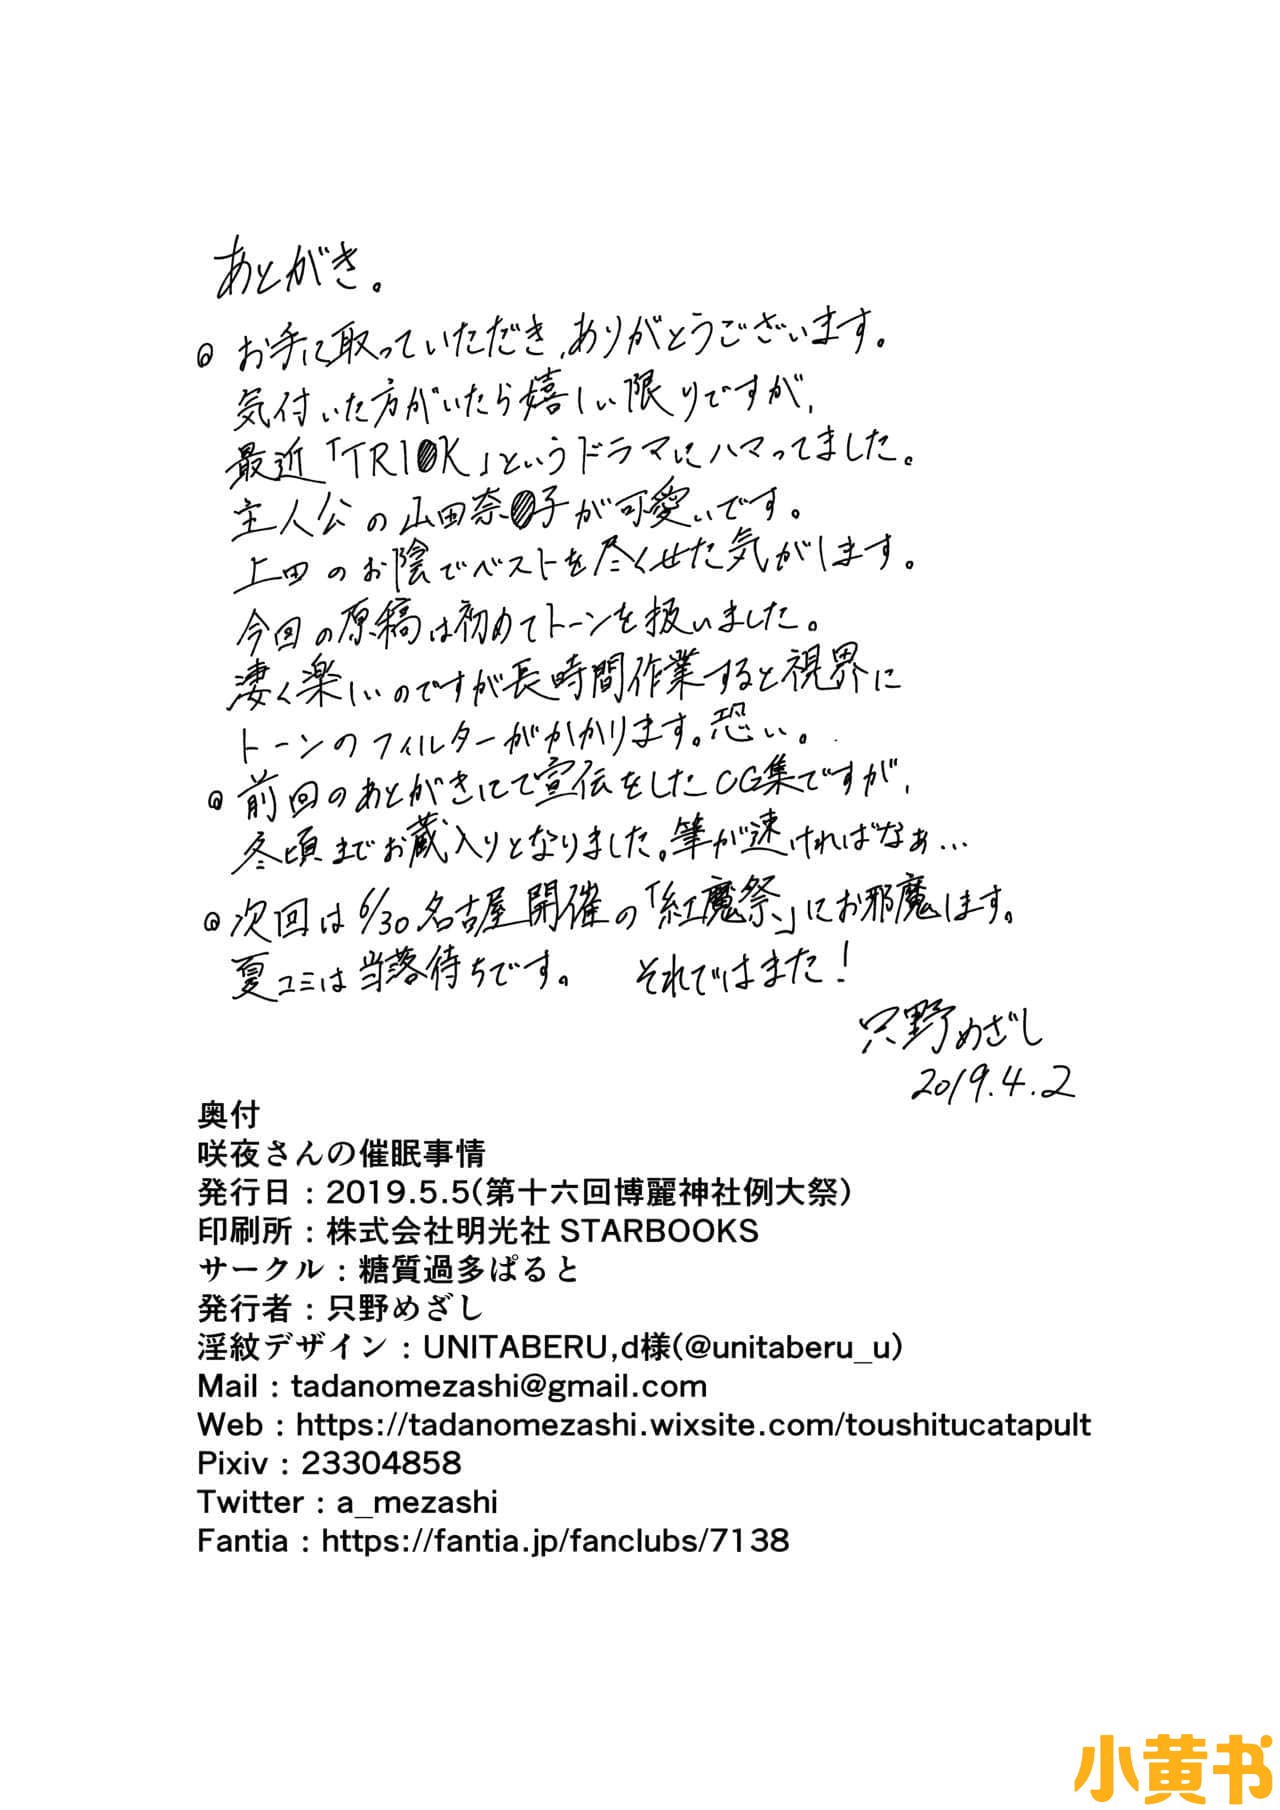 あとがき。
お手に取っていただき、ありがとうございます。
気付いた方がいたら嬉しい限りですが、
最近「TRI●K」というドラマにハマってました。
主人公の山田奈●子が可愛いです。
上田のお陰でベストを尽くせた気がします。
今回の原稿は初めてトーンを扱いました。
凄く楽しいのですが長時間作業すると視界に
トーンのフィルターがかかります。恐い。
前回のあとがきにて宣伝をしたCG集ですが、
冬頃までお蔵入りとなりました。筆が速ければなぁ…
次回は6/30名古屋開催の「紅魔祭」にお邪魔します。
夏コミは当落待ちです。 それではまた!
只野めざし
2019.4.2
奥付
咲夜さんの催眠事情
発行日:2019.5.5(第十六回博麗神社例大祭)
印刷所:株式会社明光社 STARBOOKS
サークル:糖質過多ぱると
発行者:只野めざし
淫紋デザイン:UNITABERU,d様(@unitaberu_u)
Mail:tadanomezashi@gmail.com
Web:https://tadanomezashi.wixsite.com/toushitucatapult
Pixiv:23304858
Twitter:a_mezashi
Fantia:https://fantia.jp/fanclubs/7138
小黄书